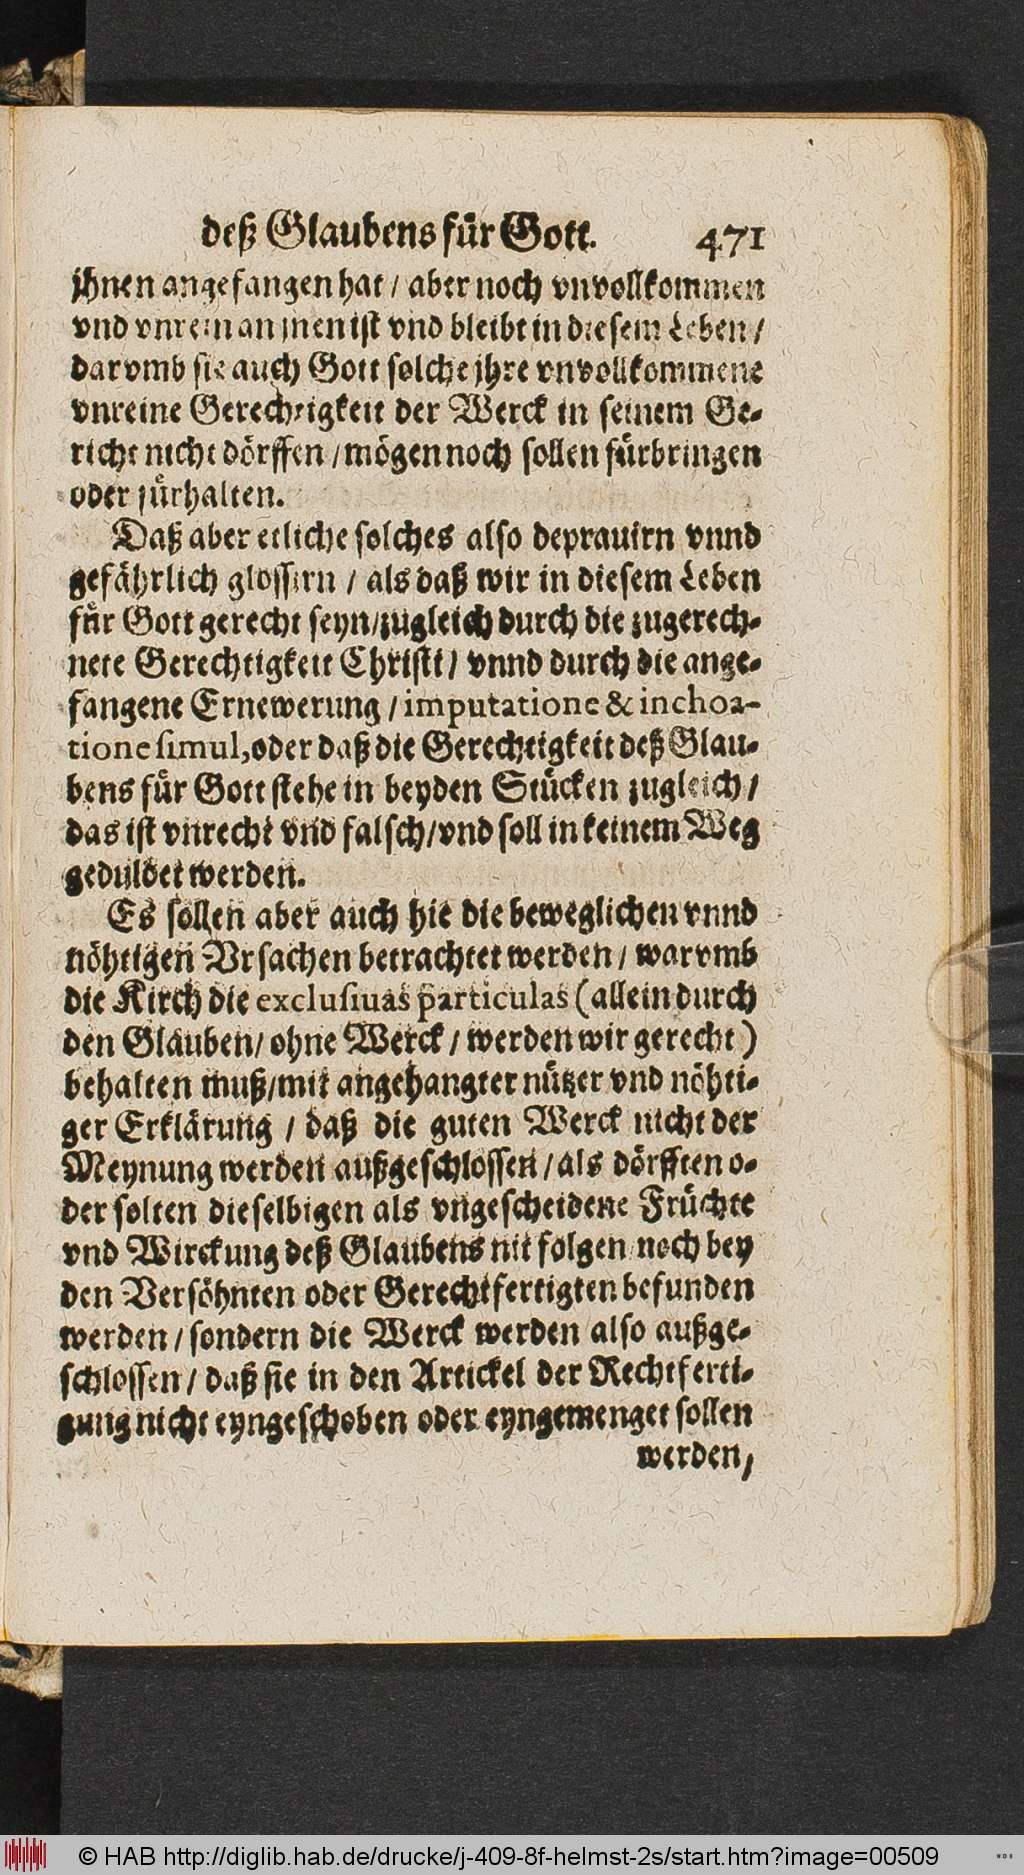 deß Glaubens für Gott. 471
jhnen angefangen hat / aber noch vnvollkommen
vnd vnrein an jnen ist vnd bleibt in diesem Leben /
darvmb sie auch Gott solche jhre vnvollkommene
vnreine Gerechtigkeit der Werck in seinem Ge-
richt nicht dörffen / mögen noch sollen fürbringen
oder fürhalten.
Daß aber etliche solches also deprauirn vnnd
gefährlich glossirn / als daß wir in diesem Leben
für Gott gerecht seyn/zugleich durch die zugerech-
nete Gerechtigkeit Christi / vnnd durch die ange-
fangene Ernewerung / imputatione & inchoa-
tione simul, oder daß die Gerechtigkeit deß Glau-
bens für Gott stehe in beyden Stücken zugleich /
das ist vnrecht vnd falsch/vnd soll in keinem Weg
geduldet werden.
Es sollen aber auch hie die beweglichen vnnd
nöhtigen Vrsachen betrachtet werden / warvmb
die Kirch die exclusiuas particulas (allein durch
den Glauben/ ohne Werck / werden wir gerecht)
behalten muß/mit angehangter nützer vnd nöhti-
ger Erklärung / daß die guten Werck nicht der
Meynung werden außgeschlossen / als dörfften o-
der solten dieselbigen als vngescheidene Früchte
vnd Wirckung deß Glaubens nit folgen noch bey
den Versöhnten oder Gerechtfertigten befunden
werden / sondern die Werck werden also außge-
schlossen / daß sie in den Artickel der Rechtferti-
gung nicht eyngeschoben oder eyngemenget sollen
werden,
© HAB http://diglib.hab.de/drucke/j-409-8f-helmst-2s/start.htm?image=00509